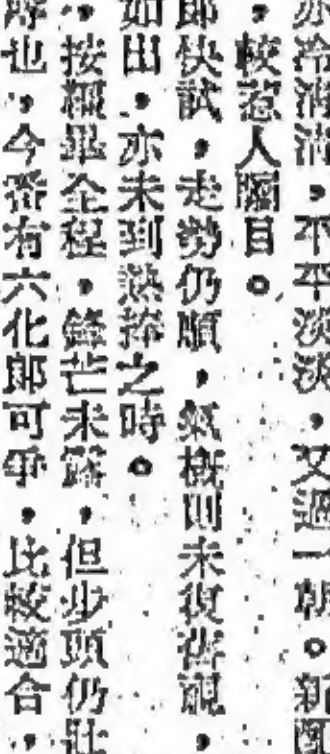 亦冷淸淸，不平淡淡，又過一朝。新
，較惹人矚目。
即快試，走勢仍順，氣槪則未復舊觀，
如出，亦未到熱捧之時。
，按轡畢全程，鋒芒未露，但步頭仍壯
序也，今番有六化郎可爭，比較適合，